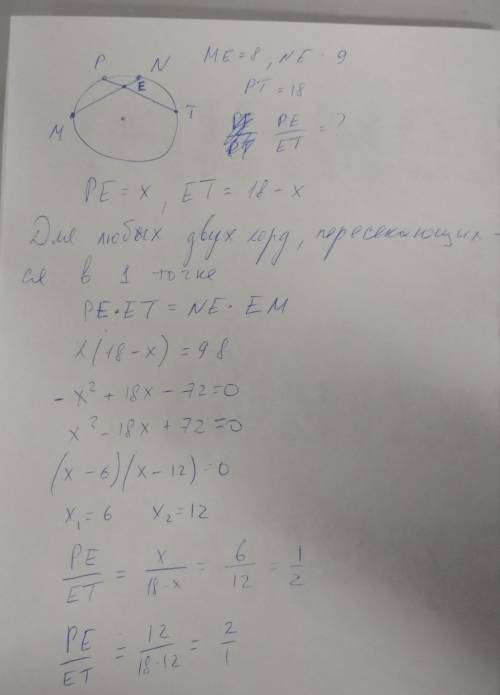 P N
E
M T
ME = 8, NE = 9
PT = 18
PE/ET = ?
PE = x, ET = 18 - x
Для любых двух хорд, пересекающих-
ся в 1 точке
PE • ET = NE · EM
x(18 - x) = 9 8
- x² + 18x - 72 = 0
x² - 18x + 72 = 0
(x - 6)(x - 12) = 0
x₁ = 6 x₂ = 12
PE/ET = x/18-x = 6/12 = 1/2
PE/ET = 12/18-12 = 2/1